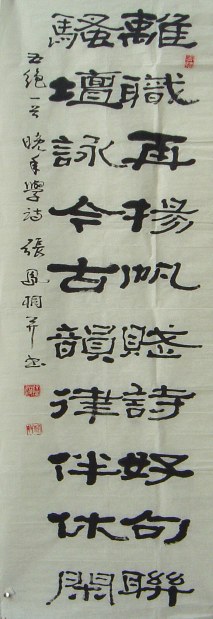 離職再揚帆賤詩好句聯
騷壇詠今古韻律伴休閑
五絕一首 晚年學詩 張